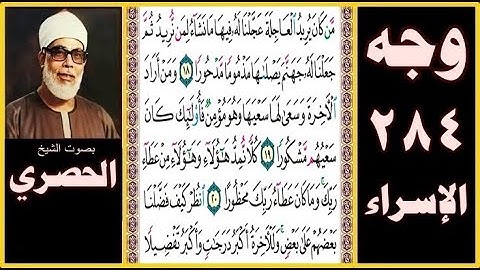 وجه
٢٨٤
الإسراء
مَّن كَانَ يُرِيدُ ٱلْعَاجِلَةَ عَجَّلْنَا لَهُۥ فِيهَا مَا نَشَآءُ لِمَن نُّرِيدُ ثُمَّ
جَعَلْنَا لَهُۥ جَهَنَّمَ يَصْلَىٰهَا مَذْمُومًا مَّدْحُورًا ١٨ وَمَنْ أَرَادَ
ٱلْأَخِرَةَ وَسَعَىٰ لَهَا سَعْيَهَا وَهُوَ مُؤْمِنٌ فَأُو۟لَٰٓئِكَ كَانَ
سَعْيُهُم مَّشْكُورًا ١٩ كُلًّا نُّمِدُّ هَٰٓؤُلَآءِ وَهَٰٓؤُلَآءِ مِنْ عَطَآءِ
رَبِّكَ وَمَا كَانَ عَطَآءُ رَبِّكَ مَحْظُورًا ٢٠ ٱنظُرْ كَيْفَ فَضَّلْنَا
بَعْضَهُمْ عَلَىٰ بَعْضٍ وَلَلْأَخِرَةُ أَكْبَرُ دَرَجَٰتٍ وَأَكْبَرُ تَفْضِيلًا
بصوت الشيخ
الحصري